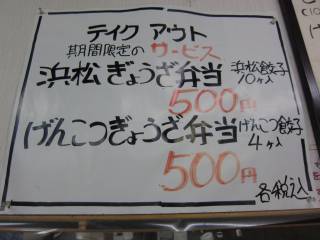 テイク アウト
期間限定の サービス
浜松ぎょうざ弁当 浜松餃子 10ヶ入
500円
げんこつぎょうざ弁当 げんこつ餃子 4ヶ入
500円
各税込